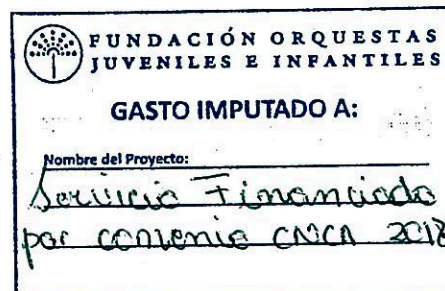 FUNDACIÓN ORQUESTAS
JUVENILES E INFANTILES
GASTO IMPUTADO A:
Nombre del Proyecto:
Servicio Financiado
por convenio CNCA 2018